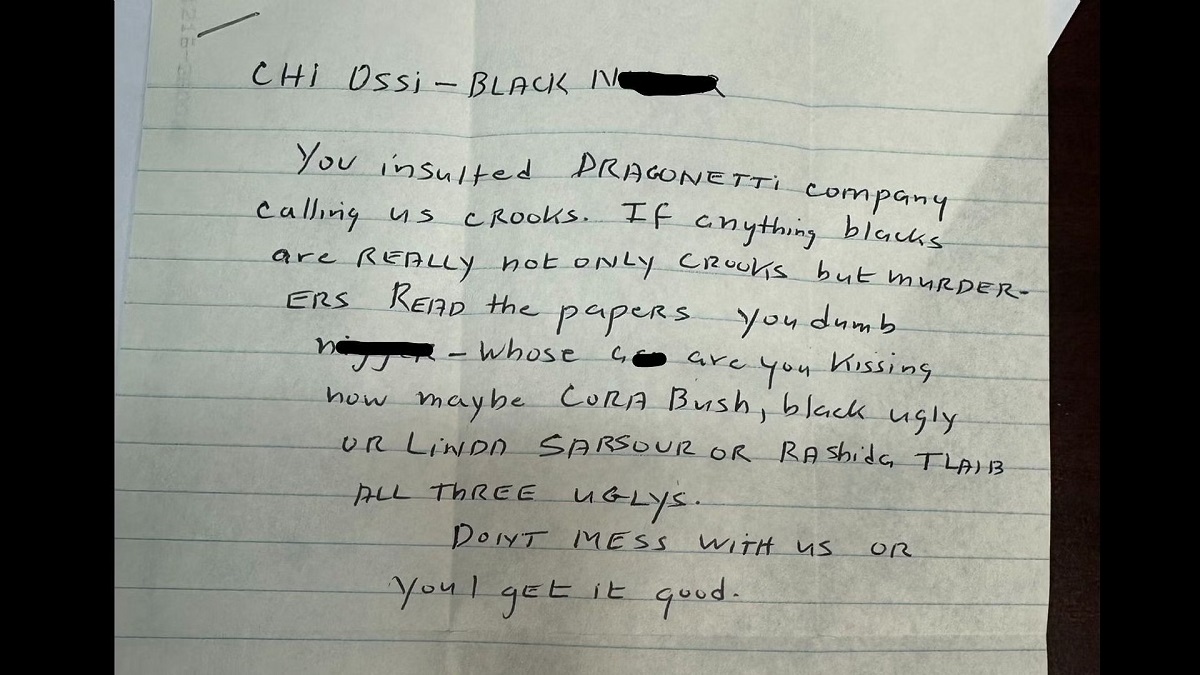 CHI OSSi - BLACK N
You insulted DRAGONETTi company
calling us CROOKS. If anything blacks
are REALLY not ONLY CROOKS but MURDER-
ERS READ the papers you dumb
- Whose are you Kissing
now maybe CORA Bush, black ugly
OR LINDA SARSOUR OR RAShida TLAIB
ALL ThREE UGLYS.
DON'T MESS WITH US OR
You'l gEt it good.